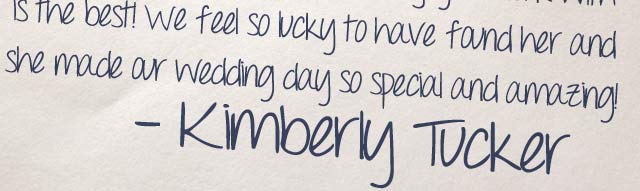 is the best! We feel so lucky to have found her and
she made our wedding day so special and amazing!
- Kimberly Tucker